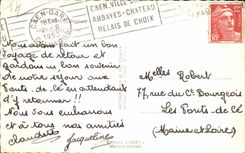 CAEN-GARE
CAEN, VILLE
ABBAYES-CHATEAU
RELAIS DE CHOIX
Nous avons fait un bon
voyage de retour et
gardons un bon souvenir
de notre séjour aux
Ponts de Cé en attendant
d'y retourner !!
Nous vous embrassons
et à vous nos amitiés
Claudette Jacqueline
Melles Robert
77, rue du Ct Bourgeois
Les Ponts-de-Cé
(Maine et Loire)